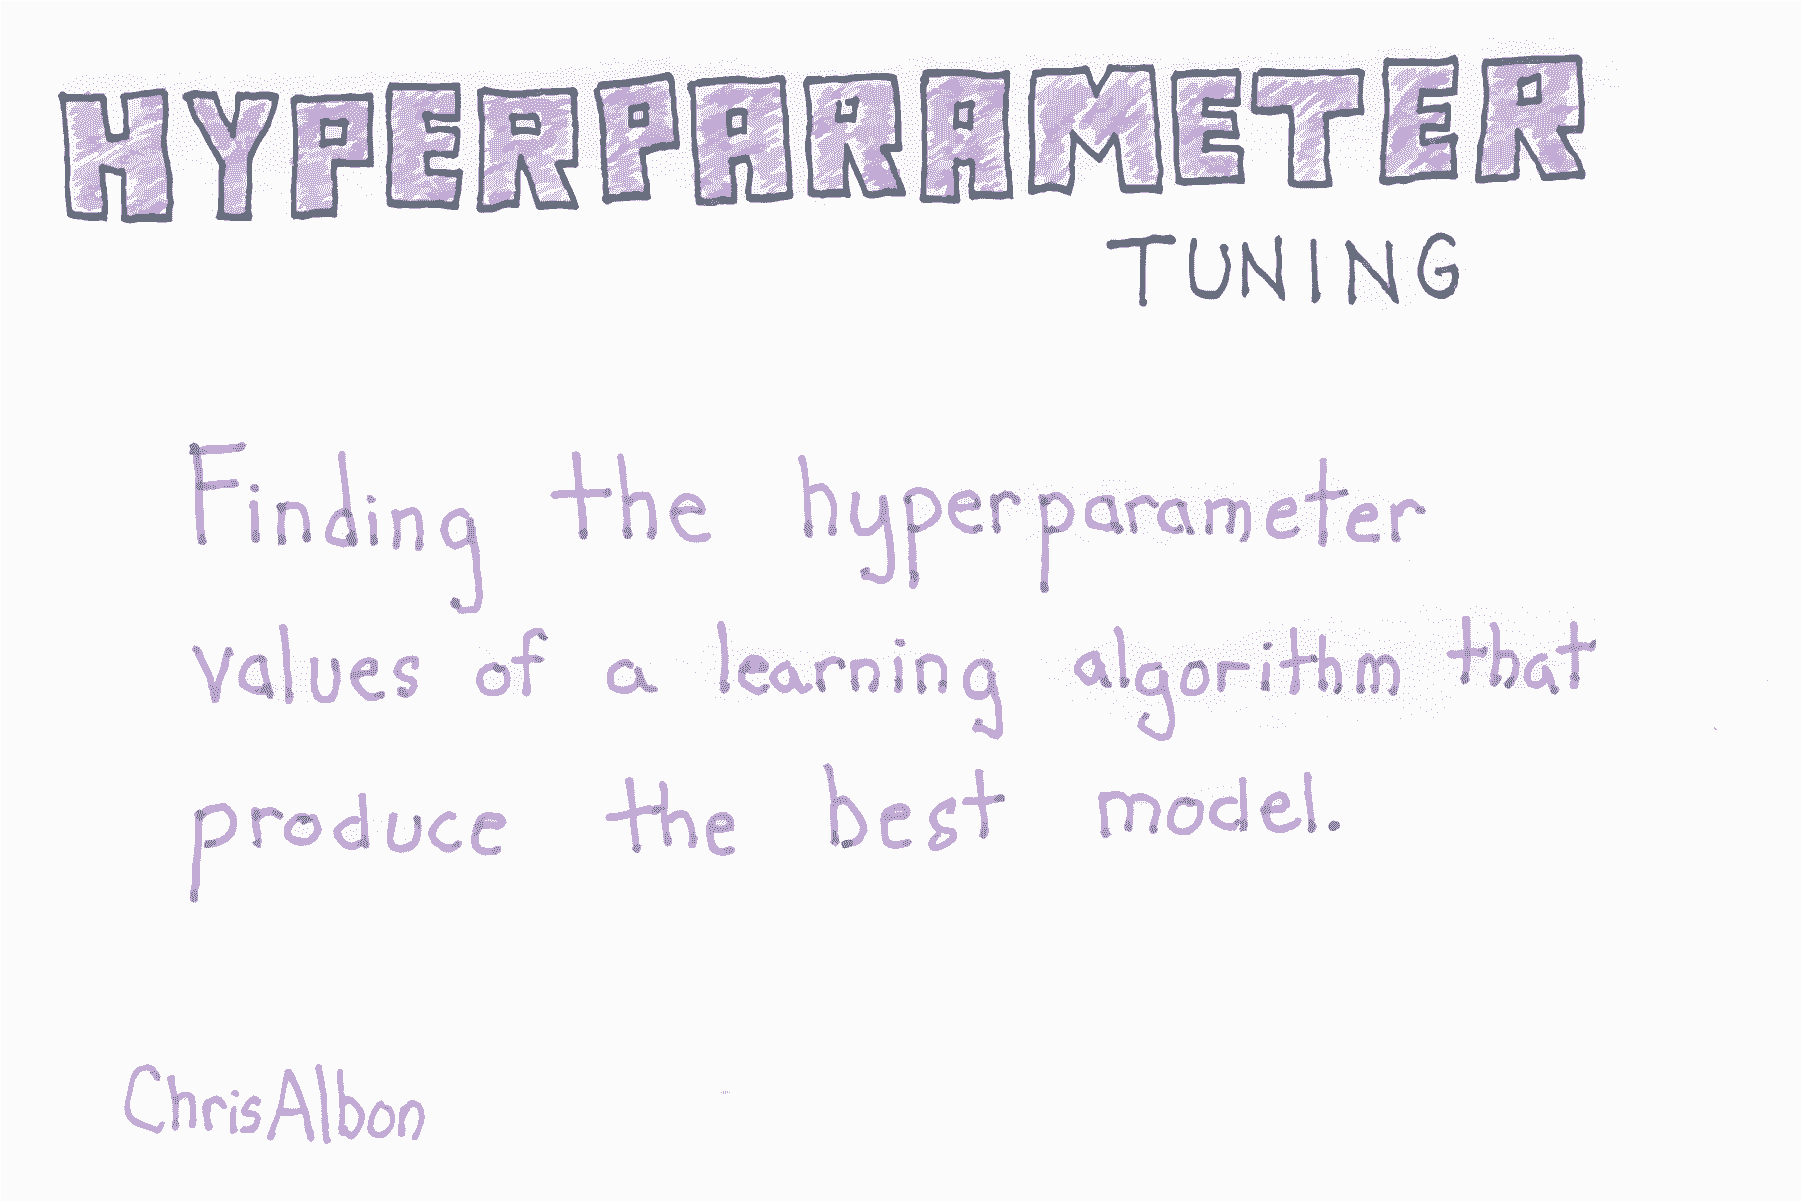 HYPERPARAMETER
TUNING
Finding the hyperparameter
values of a learning algorithm that
produce the best model.
ChrisAlbon